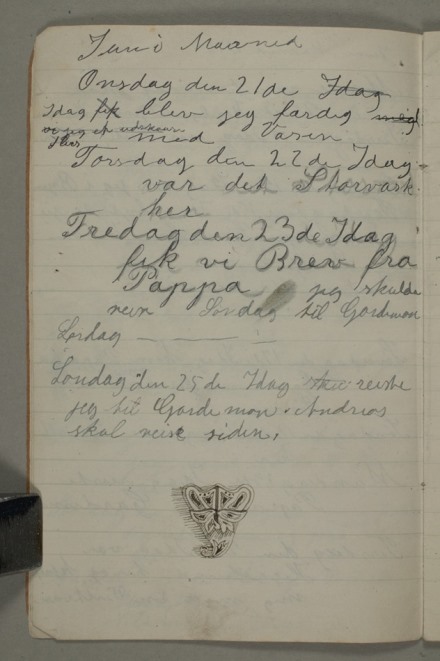 Juni Maaned
Onsdag den 21de Idag
Idag fik blev jeg færdig meg
med Væven
Torsdag den 22de Idag
var det Storvask
her
Fredag den 23de Idag
fik vi Brev fra
Pappa jeg skulde
reise Søndag til Gardemon
Lørdag — — —
Søndag den 25de Idag reiste
jeg til Gardemon. Andreas
skal reise siden.